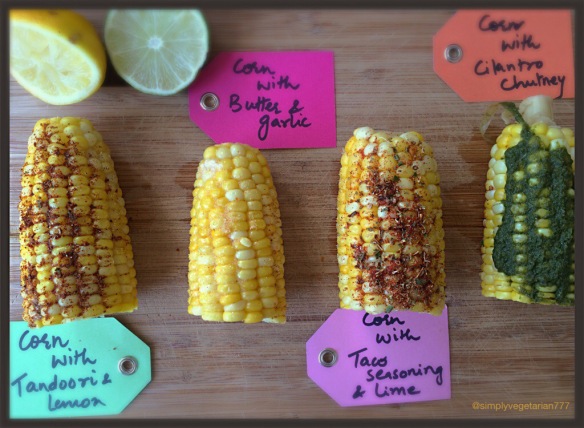 Corn
with
Butter &
garlic
Corn
with
Cilantro
Chutney
Corn
with
Tandoori &
Lemon
Corn
with
Taco
seasoning
& Lime
@simplyvegetarian777